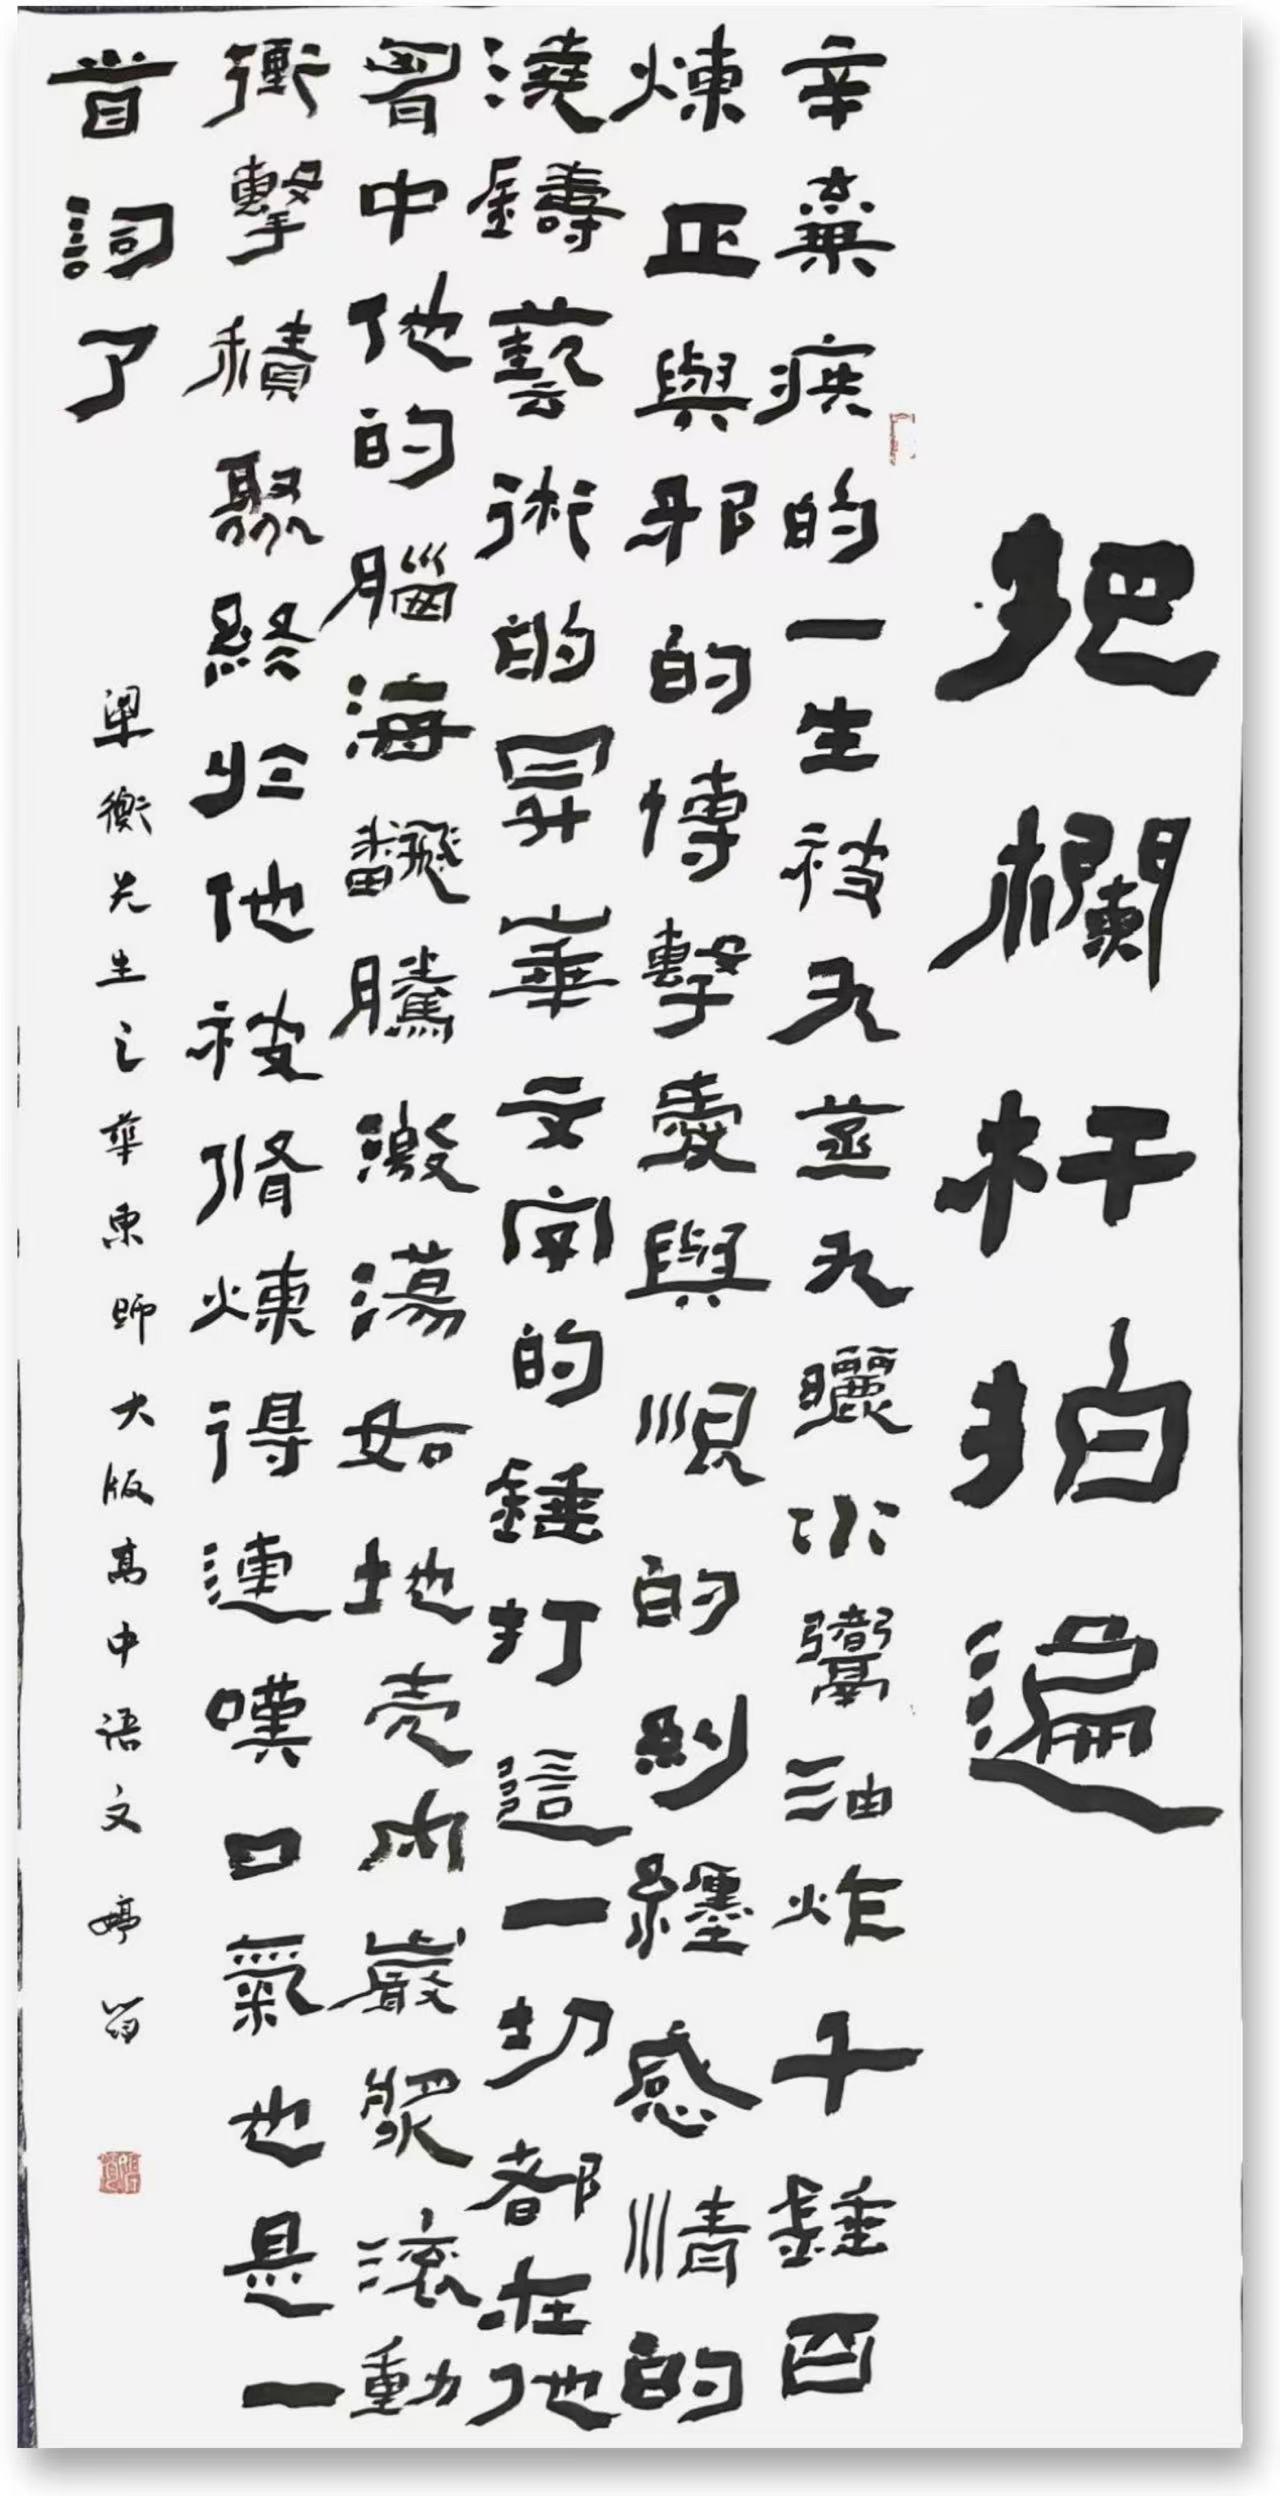 把欄杆拍遍
辛棄疾的一生被九蒸九曬水鬻油炸千錘百
煉正與邪的博擊愛與恨的糾纏感情的
澆鑄藝術的昇華文字的錘打這一切都在他
胷中他的腦海翻騰激蕩如地壳内巖漿滾動
衝擊積聚終扵他被脩煉得連嘆口氣也是一
首詞了
梁衡先生之華東師大版高中语文 婷